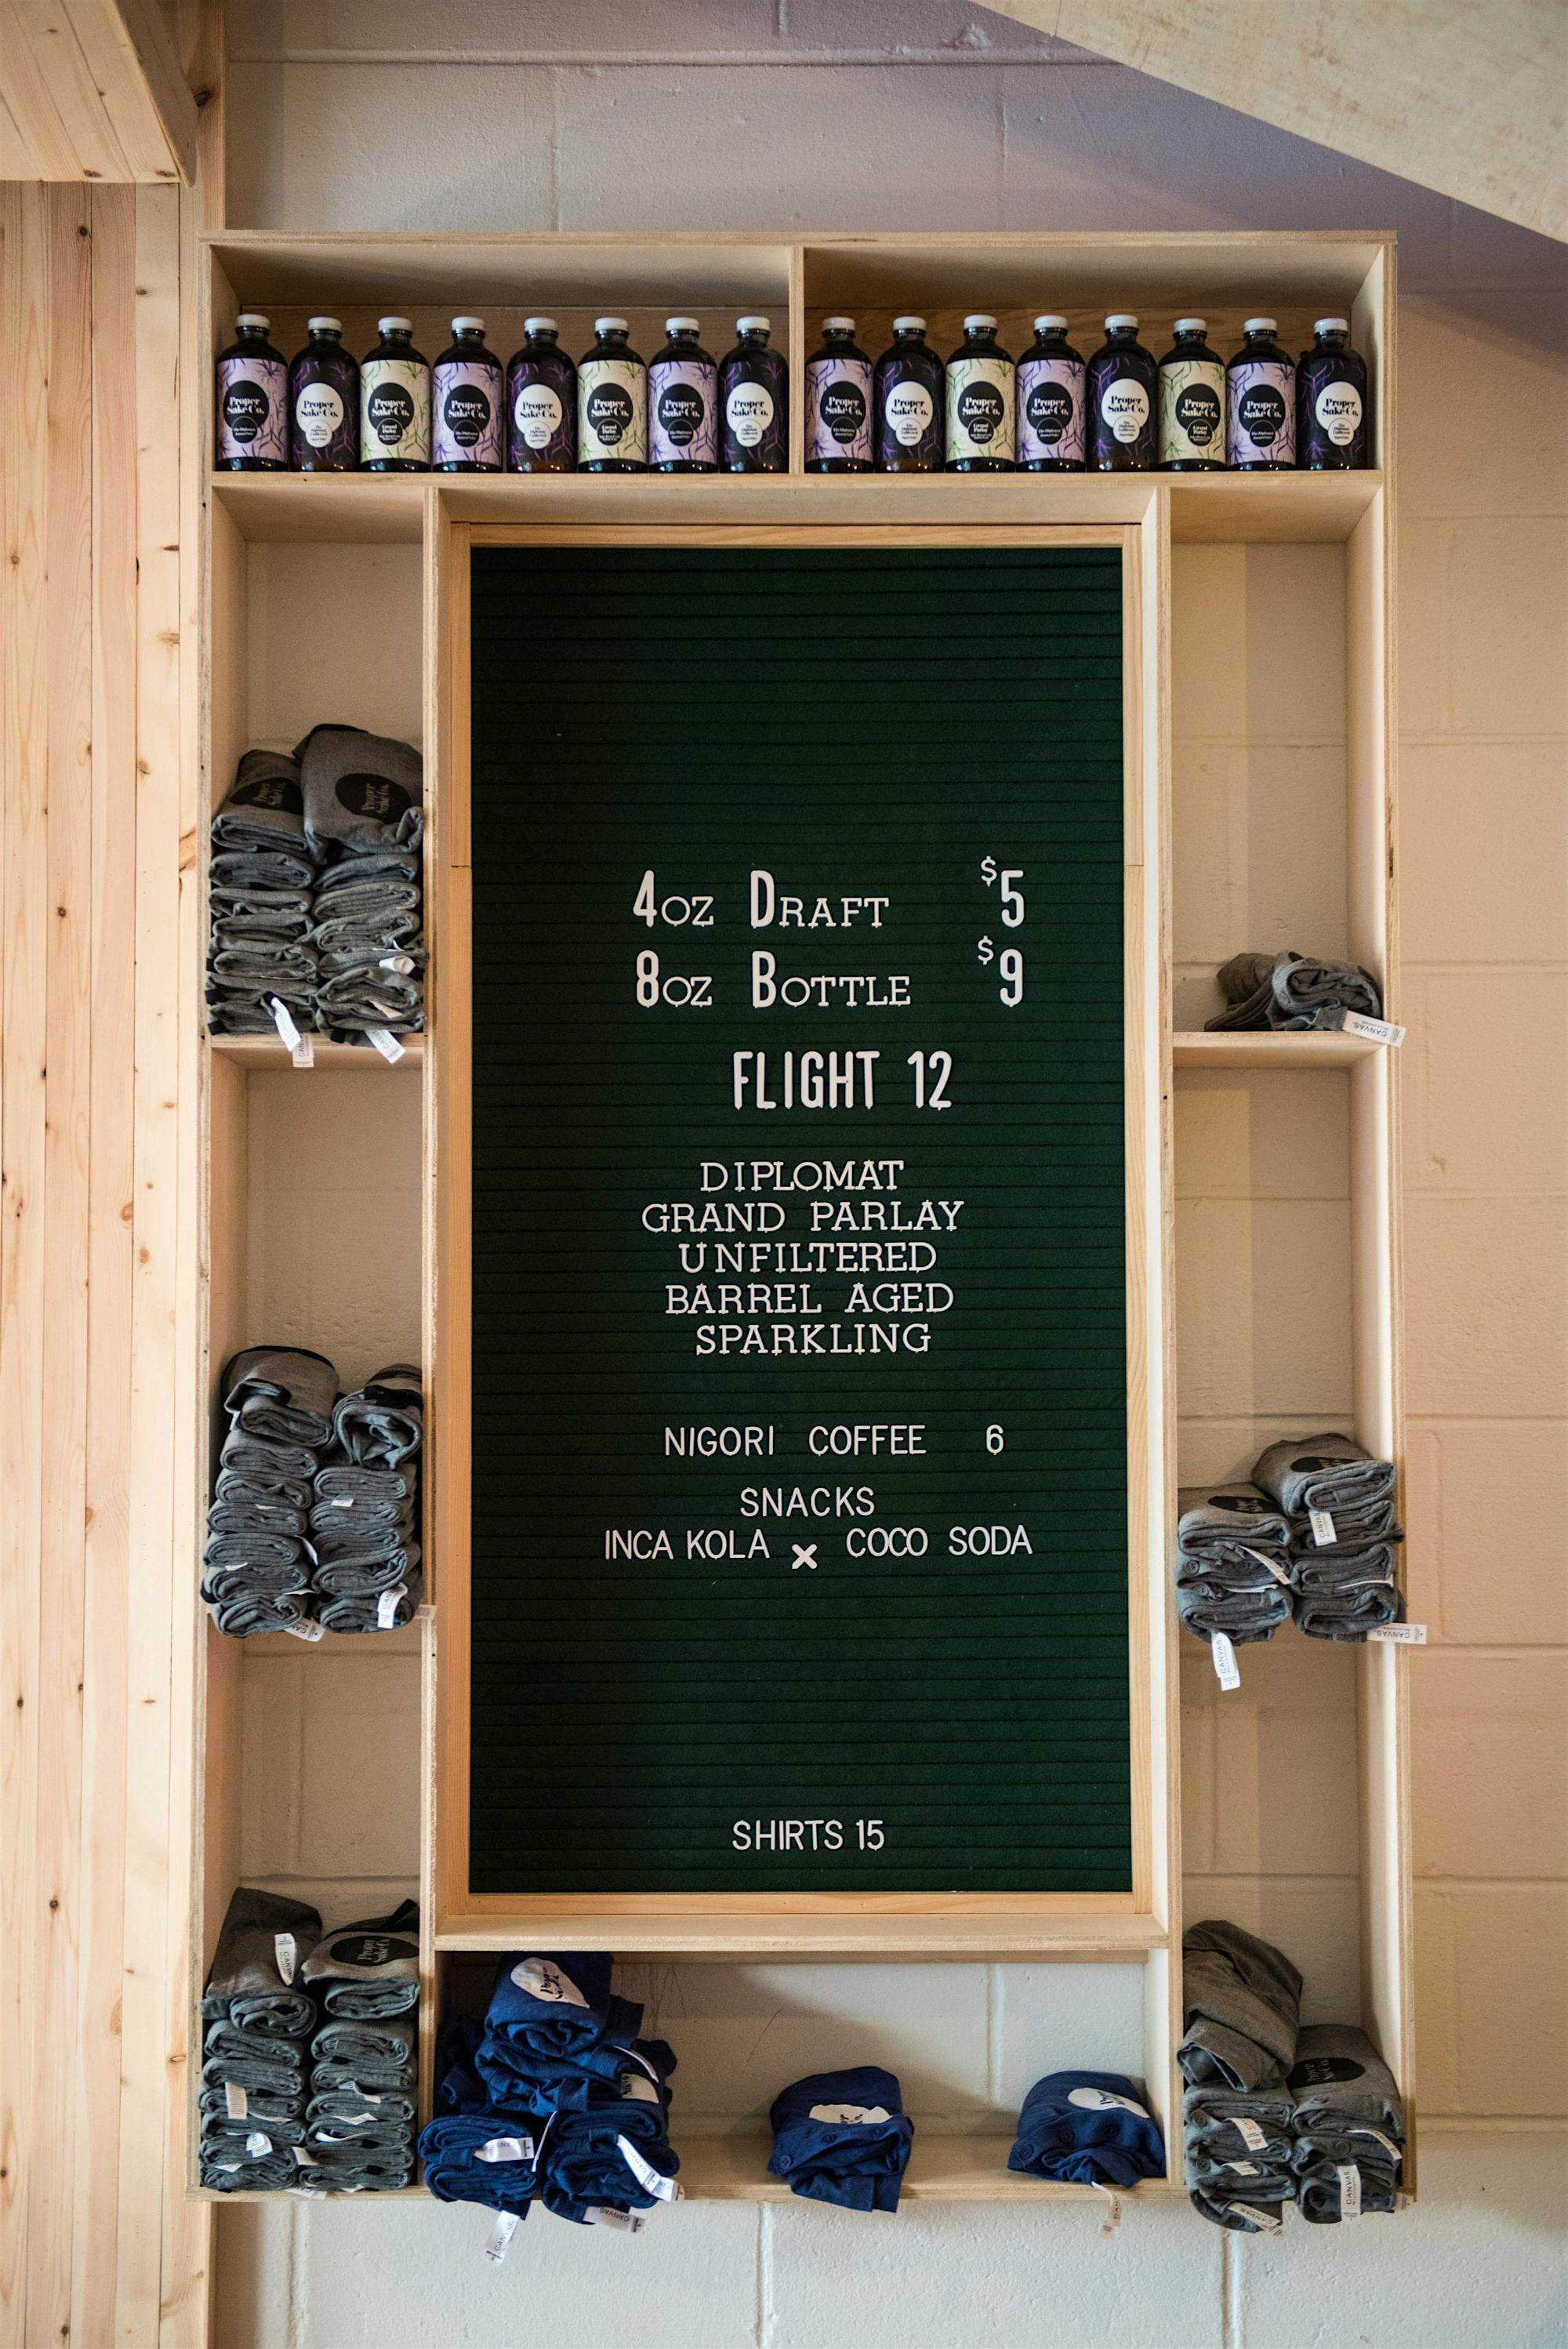 Proper
Sake Co.
Proper
Sake Co.
Proper
Sake Co.
Proper
Sake Co.
Proper
Sake Co.
Proper
Sake Co.
Proper
Sake Co.
Proper
Sake Co.
Proper
Sake Co.
Proper
Sake Co.
Proper
Sake Co.
Proper
Sake Co.
Proper
Sake Co.
Proper
Sake Co.
Proper
Sake Co.
Proper
Sake Co.
4OZ DRAFT $5
8OZ BOTTLE $9
FLIGHT 12
DIPLOMAT
GRAND PARLAY
UNFILTERED
BARREL AGED
SPARKLING
NIGORI COFFEE 6
SNACKS
INCA KOLA x COCO SODA
SHIRTS 15
Proper
Sake Co.
CANVAS
CANVAS
CANVAS
CANVAS
CANVAS
Proper
Sake Co.
CANVAS